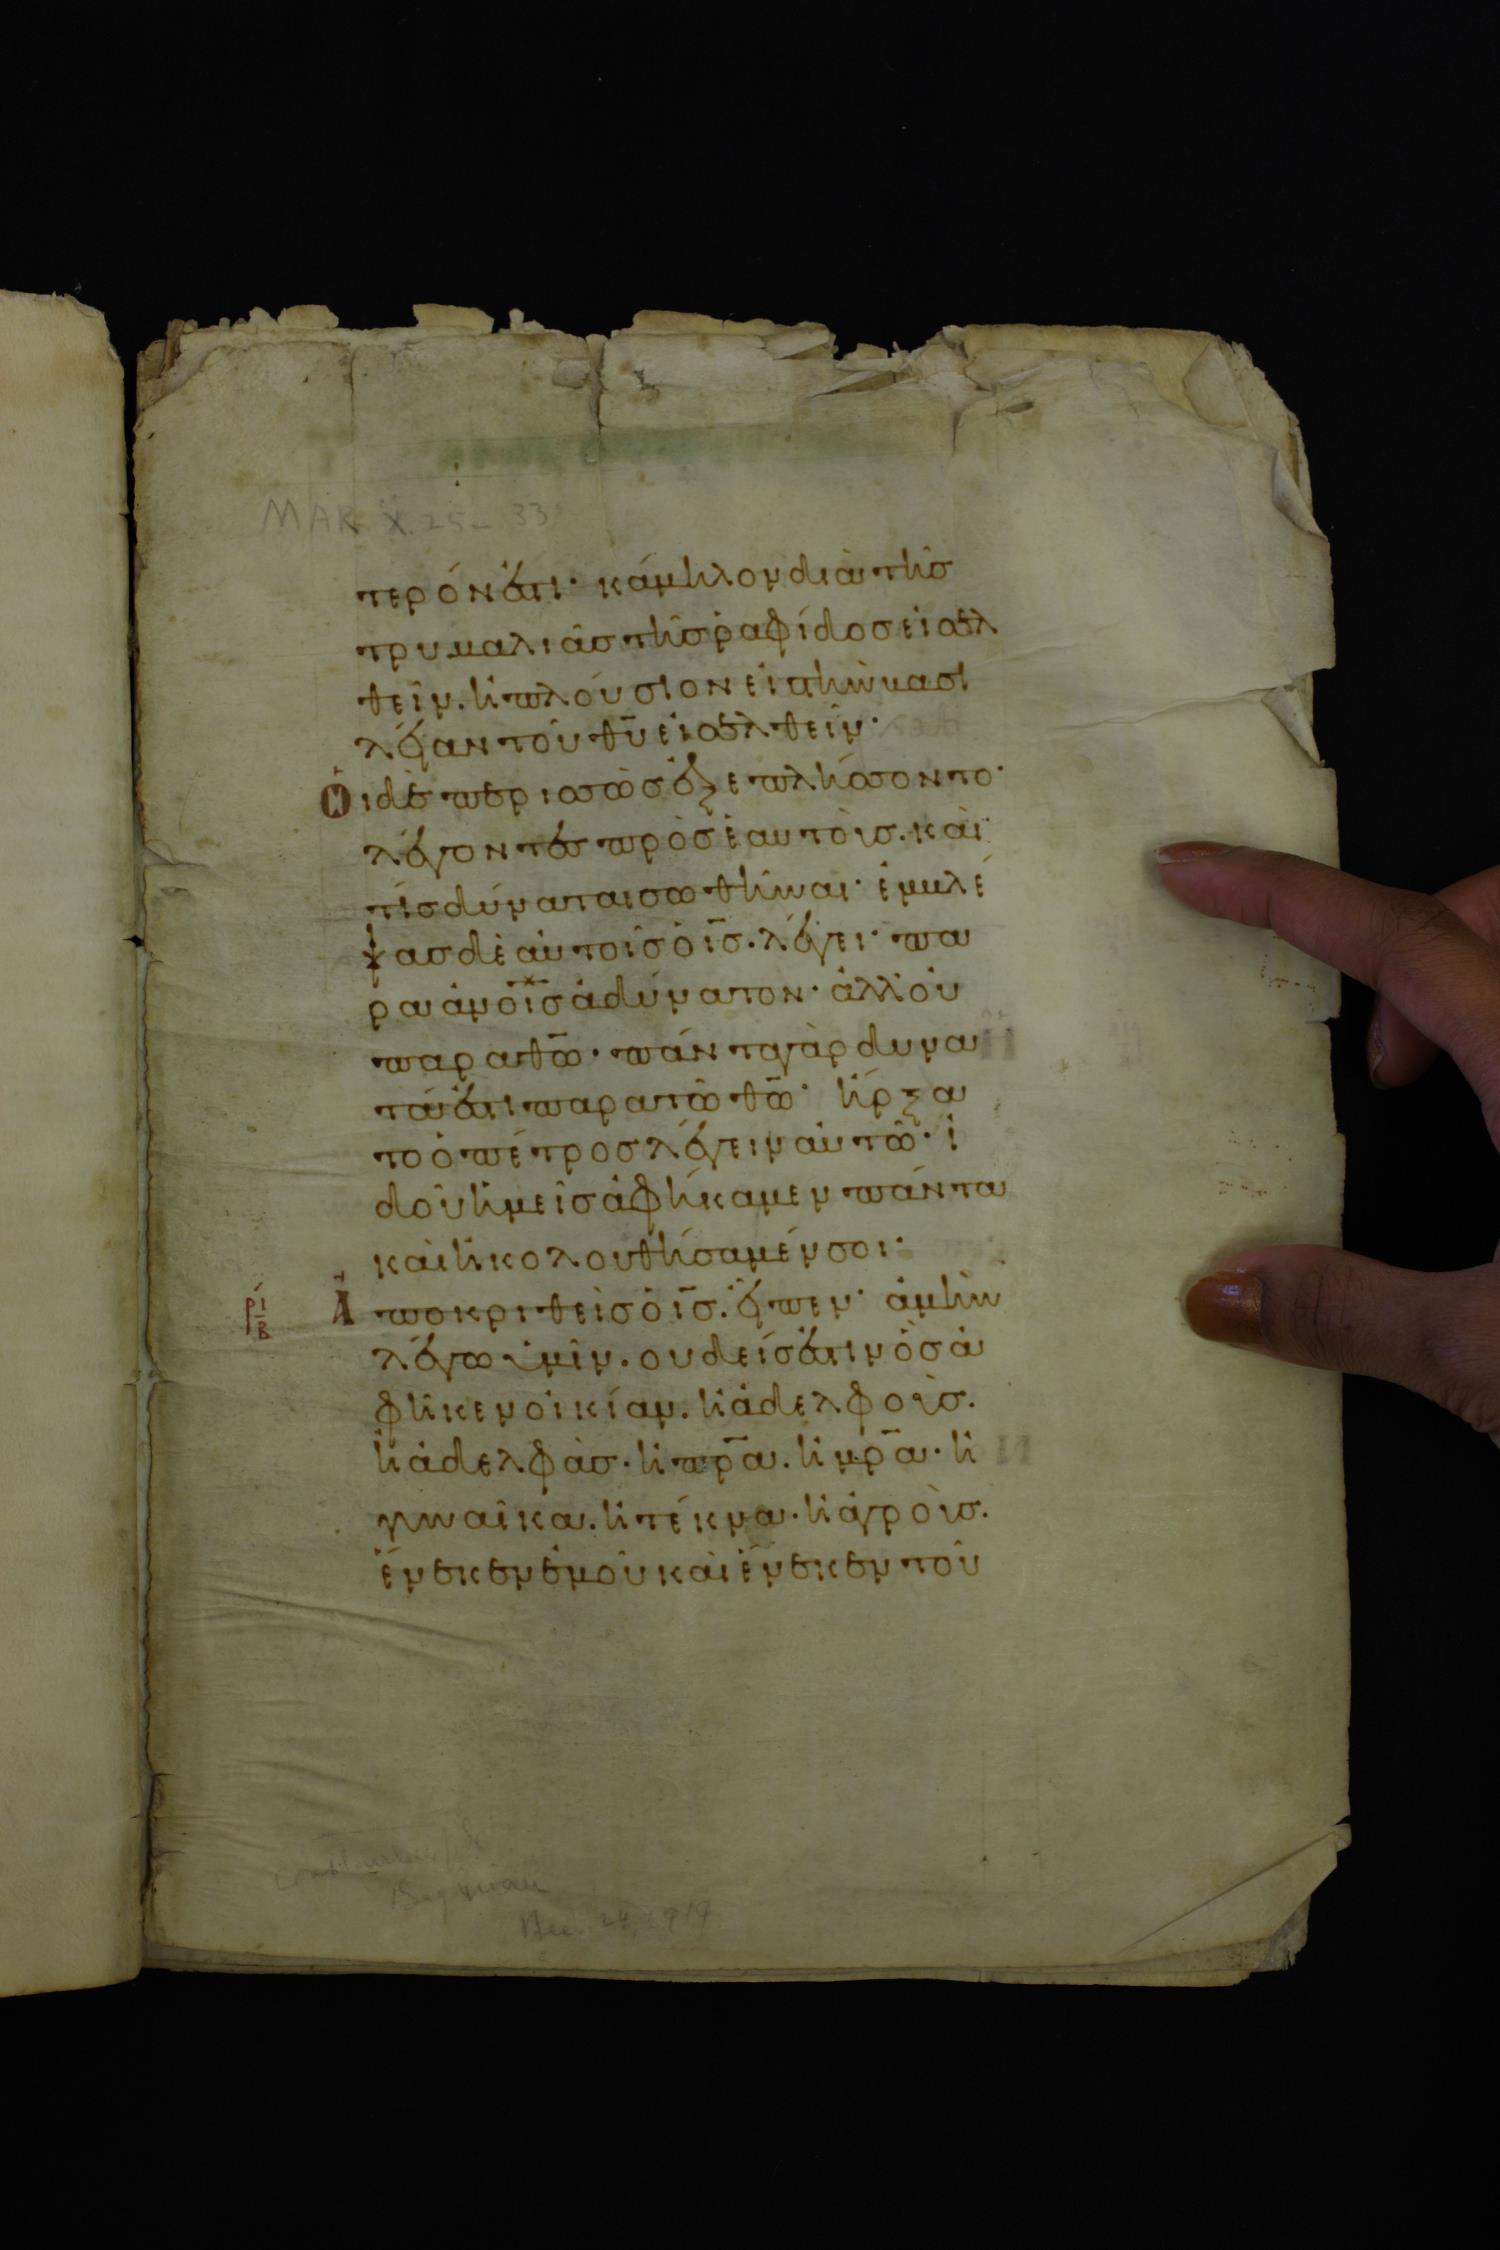 MAR. X. 25 - 33
τερόν ἐστι· κάμηλον διὰ τῆσ
τρυμαλιᾶσ τῆσ ῥαφίδοσ εἰσελ
θεῖν. ἢ πλούσιον εἰσ τὴν βασι
λείαν τοῦ θ̅υ̅ εἰσελθεῖν·
Οἱ δὲ περισσῶσ ἐξεπλήσσοντο·
λέγοντεσ πρὸσ ἑαυτούσ. καὶ
τίσ δύναται σωθῆναι· ἐμβλέ
ψασ δὲ αὐτοῖσ ὁ ι̅σ̅. λέγει· πα
ρὰ ἀν̅ο̅ι̅σ̅ ἀδύνατον· ἀλλ' οὐ
παρα θ̅ω̅· πάντα γὰρ δυνα
τά ἐστι παρα τῶ θ̅ω̅· ἤρξα
το ὁ πέτροσ λέγειν αὐτῶ· ἰ
δοῦ ἡμεῖσ ἀφήκαμεν πάντα
καὶ ἠκολουθήσαμέν σοι·
ρ̅ι̅β̅ Ἀποκριθεὶσ ὁ ι̅σ̅. εἶπεν· ἀμὴν
λέγω ὑμῖν. ουδείσ ἐστιν ὃσ ἀ
φῆκεν οἰκίαν. ἢ ἀδελφούσ.
ἢ ἀδελφὰσ. ἢ π̅ρ̅α̅. ἢ μ̅ρ̅α̅· ἢ
γυναῖκα. ἢ τέκνα. ἢ ἀγρούσ.
ἕνεκεν ἐμοῦ καὶ ἕνεκεν τοῦ
Dec. 24, 1919